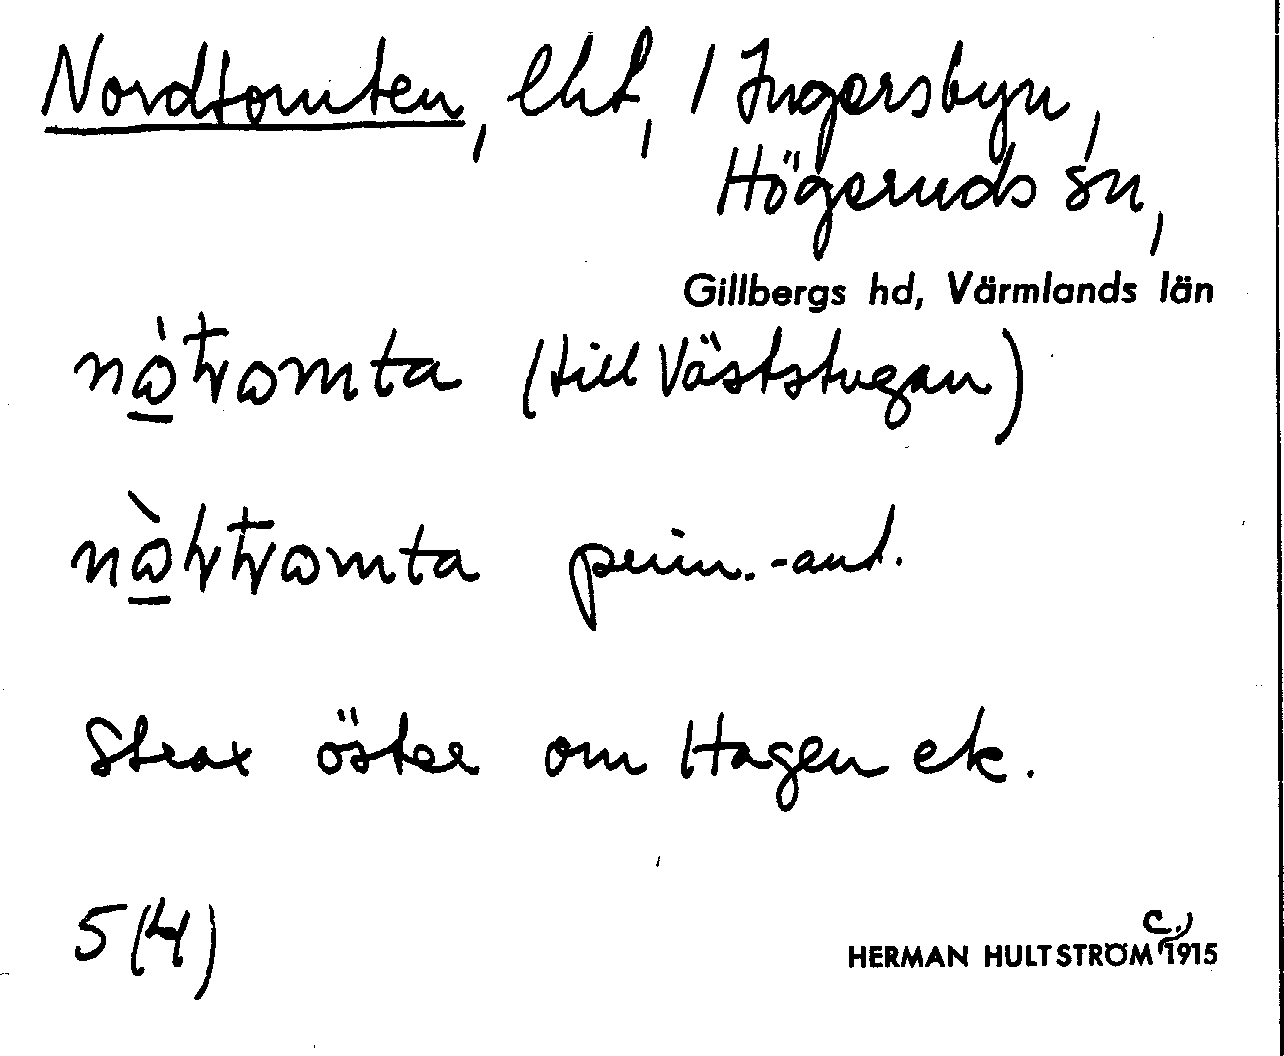 Nordtomten, lht, i Ingersbyn,
Högeruds sn,
Gillbergs hd, Värmlands län
(till Väststugan)
prim.-ant.
Strax öster om Hagen ek.
5(4)
HERMAN HULTSTRÖM c. 1915